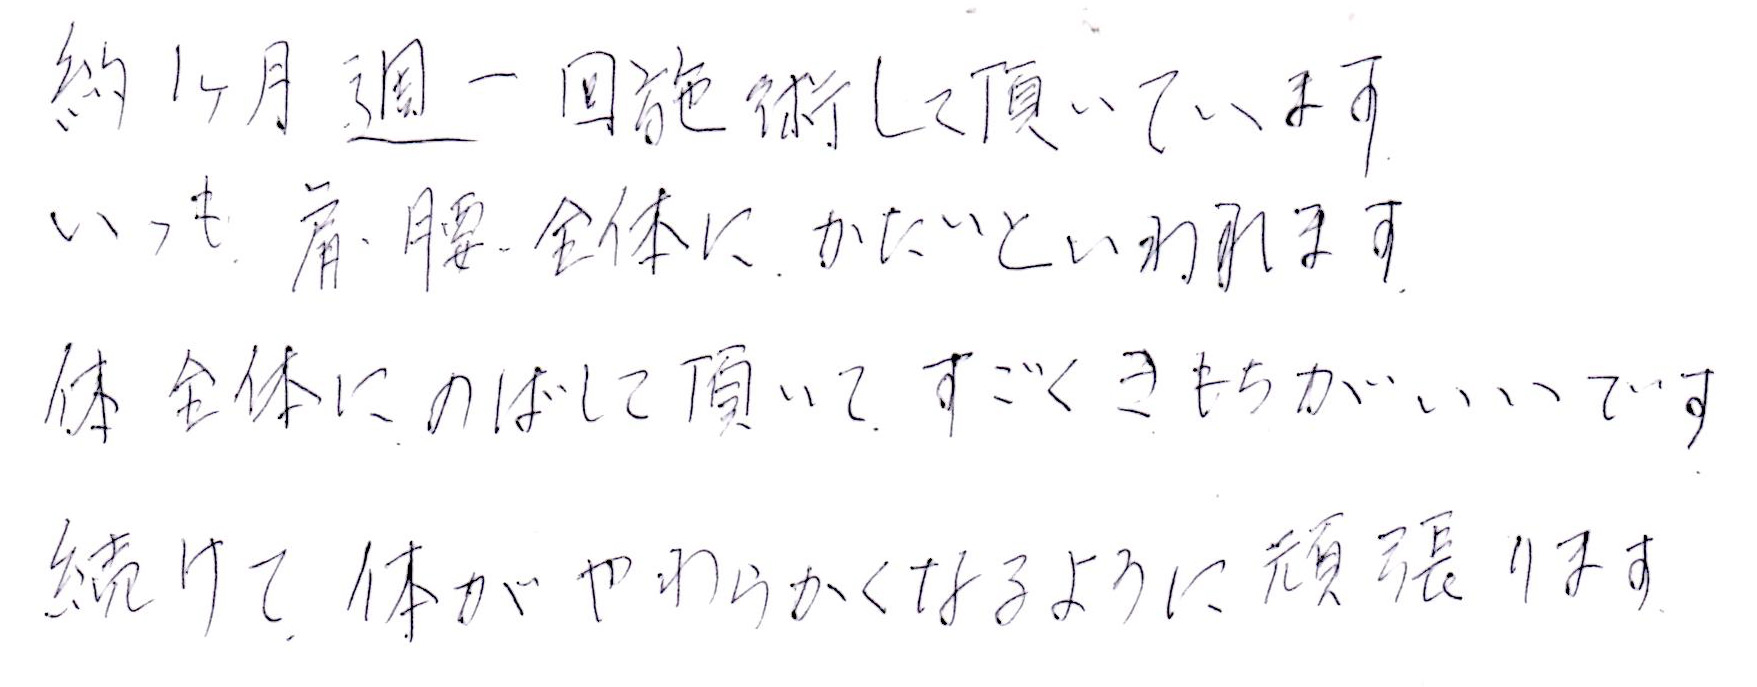 約1ヶ月週一回施術して頂いています
いつも肩・腰・全体に、かたいといわれます。
体全体にのばして頂いて、すごくきもちがいいです。
続けて、体がやわらかくなるように頑張ります。